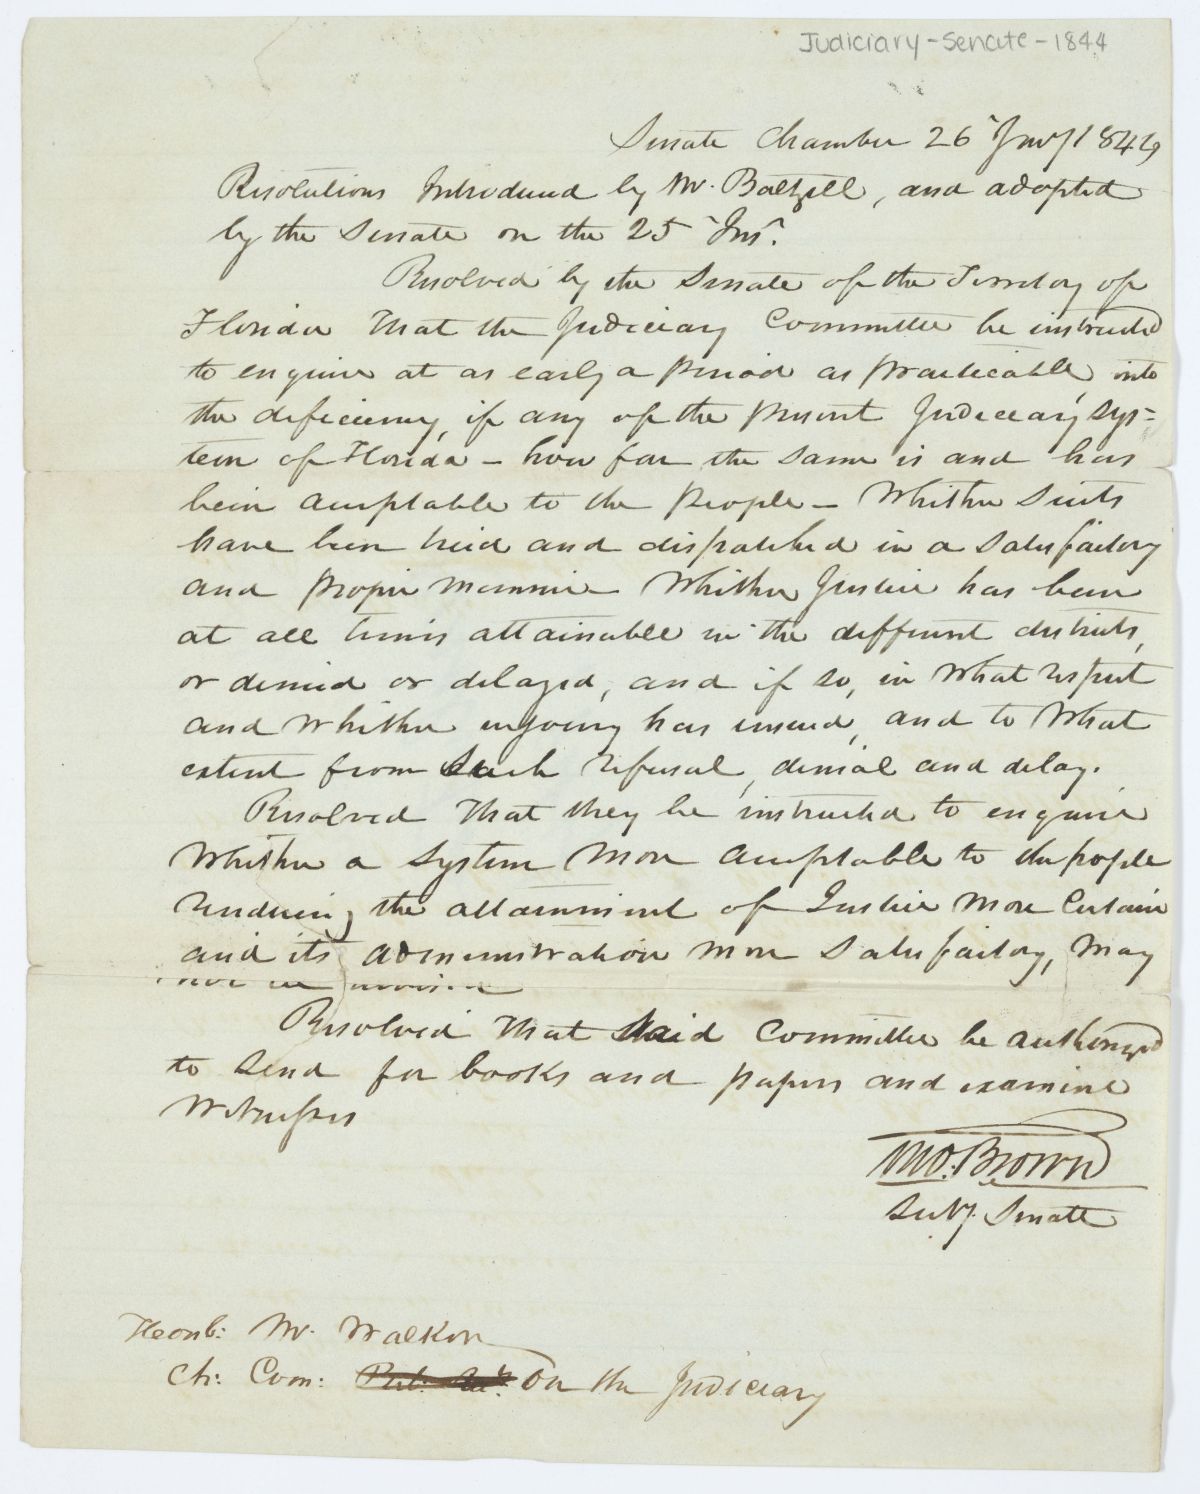 Judiciary - Senate - 1844
Senate Chamber 26 Jany 1844
Resolutions Introduced by Mr. Baltzell, and adopted
by the Senate on the 25 Inst.
Resolved by the Senate of the Territory of
Florida That the Judiciary Committee be instructed
to enquire at as early a period as practicable, into
the deficiency, if any of the present Judiciary Sys=
tem of Florida - how far the same is and has
been acceptable to the People - Whether Suits
have been tried and dispatched in a satisfactory
and proper manner Whether Justice has been
at all times attainable in the different districts,
or denied or delayed, and if so, in What respect
and Whether injury has ensued, and to What
extent from such refusal, denial and delay.
Resolved That they be instructed to enquire
Whether a System More acceptable to the people
rendering the attainment of Justice More Certain
and its administration More Satisfactory, May
not be devised
Resolved That said Committee be authorized
to Send for books and papers and examine
Witnesses
Tho. Brown
Secty. Senate
Honb: Mr. Walker
Ch: Com: On the Judiciary